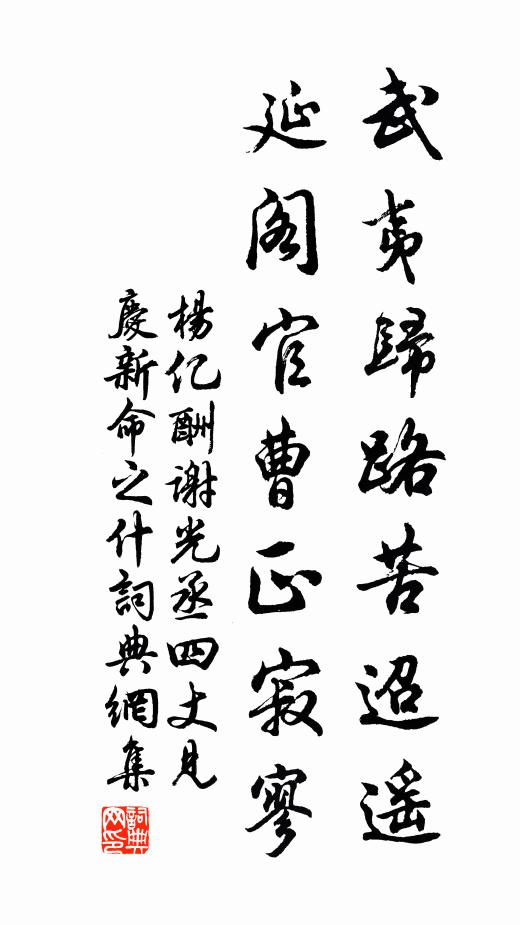 武夷歸路苦迢遥
延阁官曹正寂寥
楊亿酬謝光丞四丈見
慶新命之什詞典網集
詞典网印